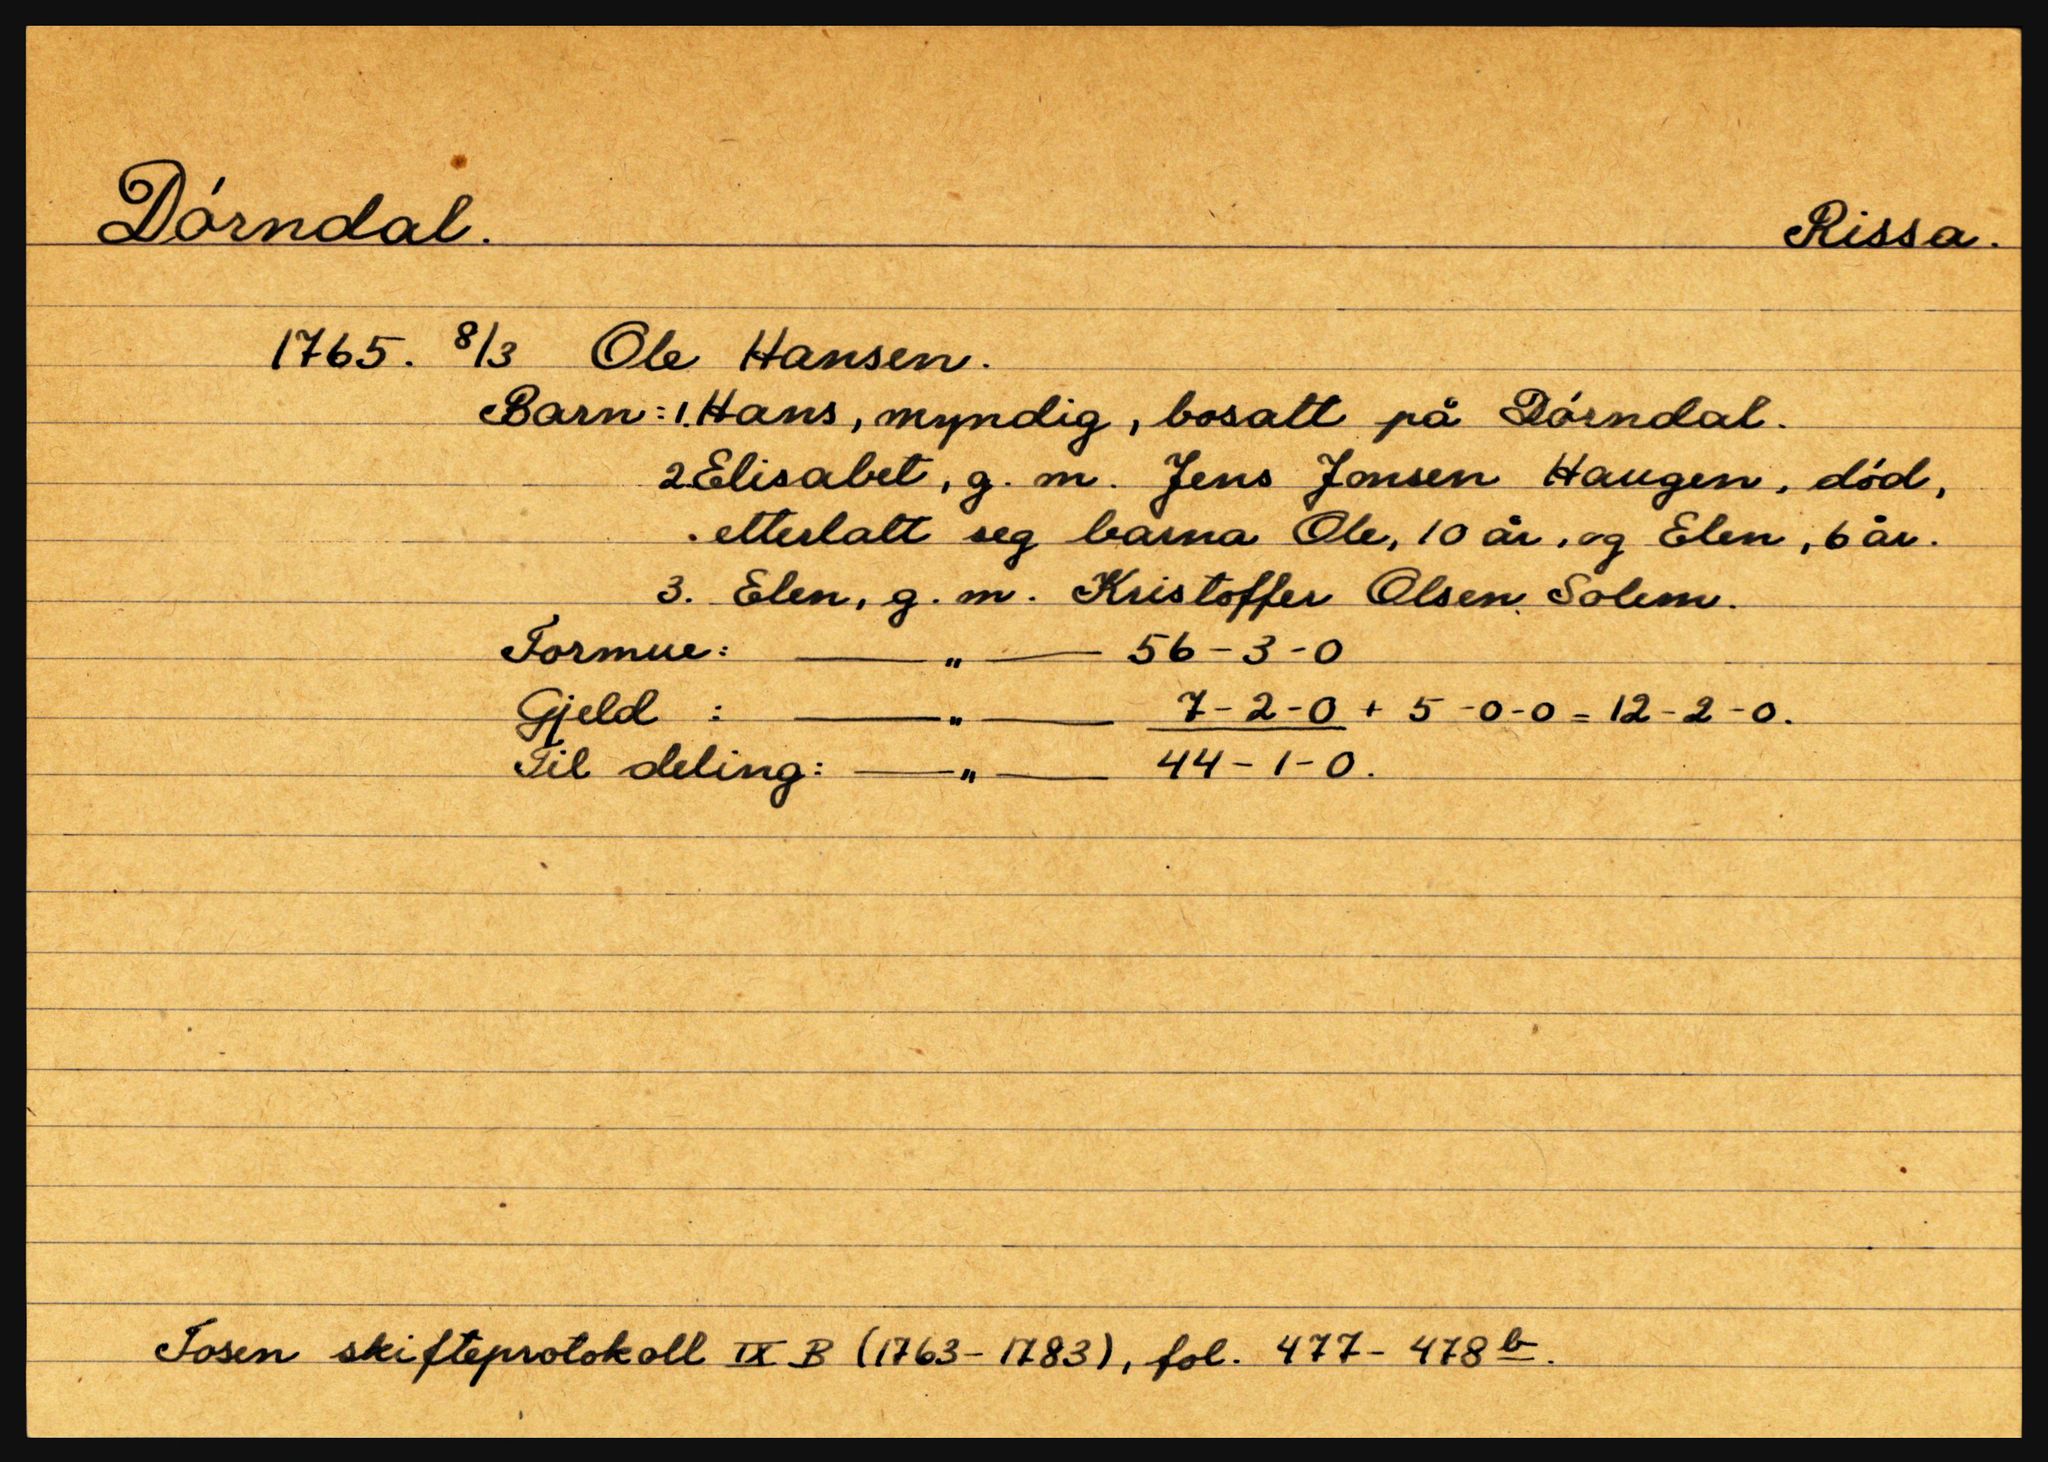 Dørndal. Rissa.
1765. 8/3 Ole Hansen.
Barn: 1. Hans, myndig, bosatt på Dørndal.
2. Elisabet, g. m. Jens Jonsen Haugen, død,
etterlatt seg barna Ole, 10 år, og Elen, 6 år.
3. Elen, g. m. Kristoffer Olsen Solem.
Formue: — „ — 56-3-0
Gjeld : — „ — 7-2-0 + 5-0-0 = 12-2-0.
Til deling: — „ — 44-1-0.
Fosen skifteprotokoll IX B (1763-1783), fol. 477-478 b.